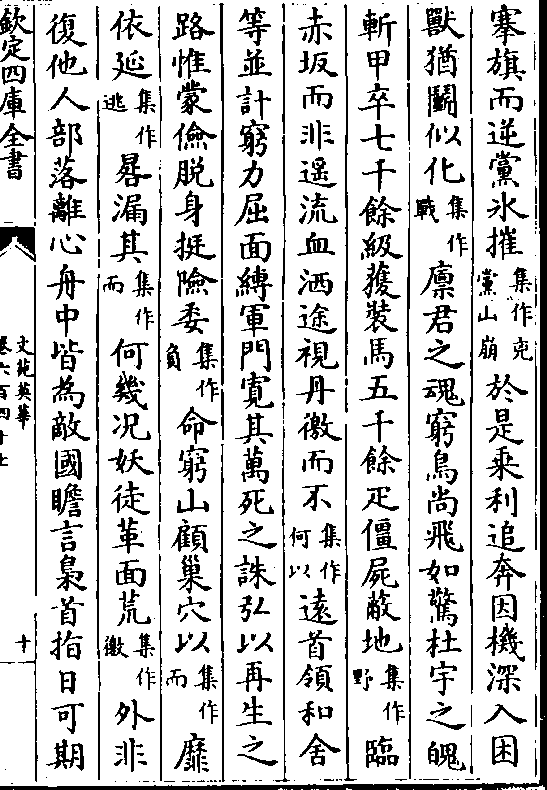 搴旗而逆黨氷摧集作克黨山崩於是乘利追奔因機深入困
獸猶鬭似化集作戰廪君之魂窮鳥尚飛如驚杜宇之魄
斬甲卒七千餘級獲裝馬五千餘疋僵屍蔽地集作野臨
赤坂而非遥流血洒途視丹徼而不集作何以遠首領和舍
等並計窮力屈面縛軍門寛其萬死之誅弘以再生之
路惟蒙儉脱身挺險委集作負命窮山顧巢穴以集作而靡
依延集作逃晷漏其集作而何幾况妖徒革面荒集作徼外非
復他人部落離心舟中皆為敵國瞻言梟首指日可期
欽定四庫全書
文苑英華
卷六百四十七
十